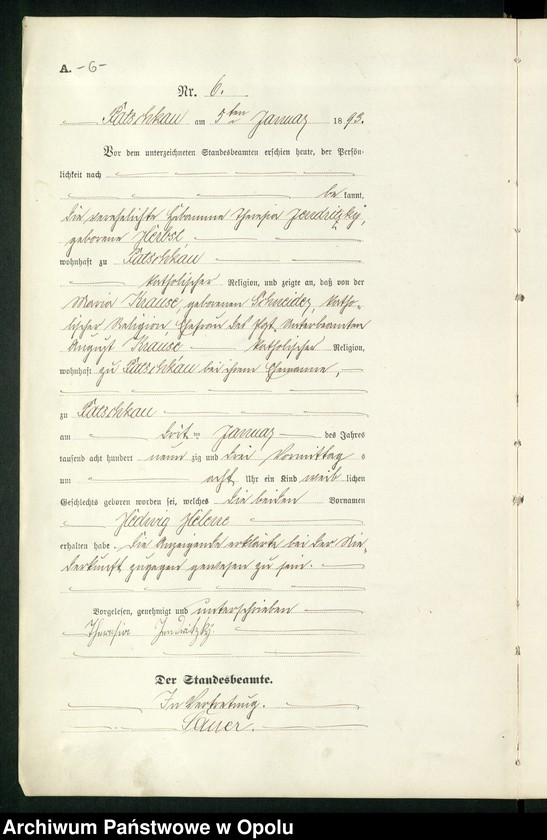 A. -6-
Nr. 6.
Patschkau am 5ten Januar 1893.
Vor dem unterzeichneten Standesbeamten erschien heute, der Persön-
lichkeit nach
be kannt,
die verehelichte Hebamme Theresia Jendritzky,
geborene Herbse,
wohnhaft zu Patschkau
katholischer Religion, und zeigte an, daß von der
Maria Krause, geborenen Schneider, katho-
lischer Religion Ehefrau des Unterbeamten
August Krause katholischer Religion,
wohnhaft zu Patschkau bei ihrem Ehemanne,
zu Patschkau
am dritten Januar des Jahres
tausend acht hundert neun zig und drei Vormittag s
um acht Uhr ein Kind weib lichen
Geschlechts geboren worden sei, welches die beiden Vornamen
Hedwig Helene
erhalten habe. Die Anzeigende erklärte bei der Nie-
derkunft zugegen gewesen zu sein.
Vorgelesen, genehmigt und unterschrieben
Theresia Jendritzky.
Der Standesbeamte.
In Vertretung.
Sauer.
Archiwum Państwowe w Opolu